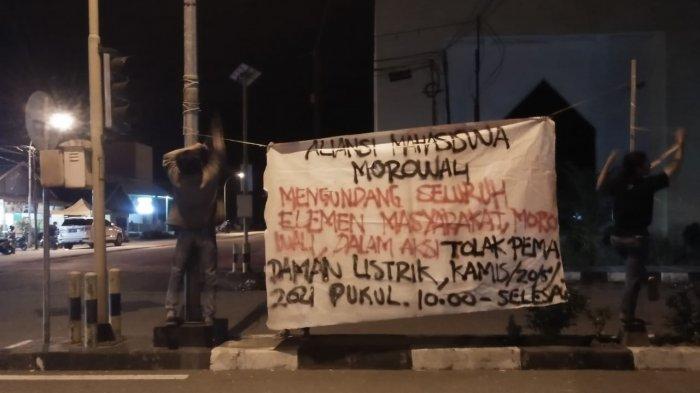 ALIANSI MAHASISWA
MOROWALI
MENGUNDANG SELURUH
ELEMEN MASYARAKAT, MORO
WALI, DALAM AKSI TOLAK PEMA
DAMAN LISTRIK, KAMIS/20/5/
2021 PUKUL. 10.00 - SELESAI